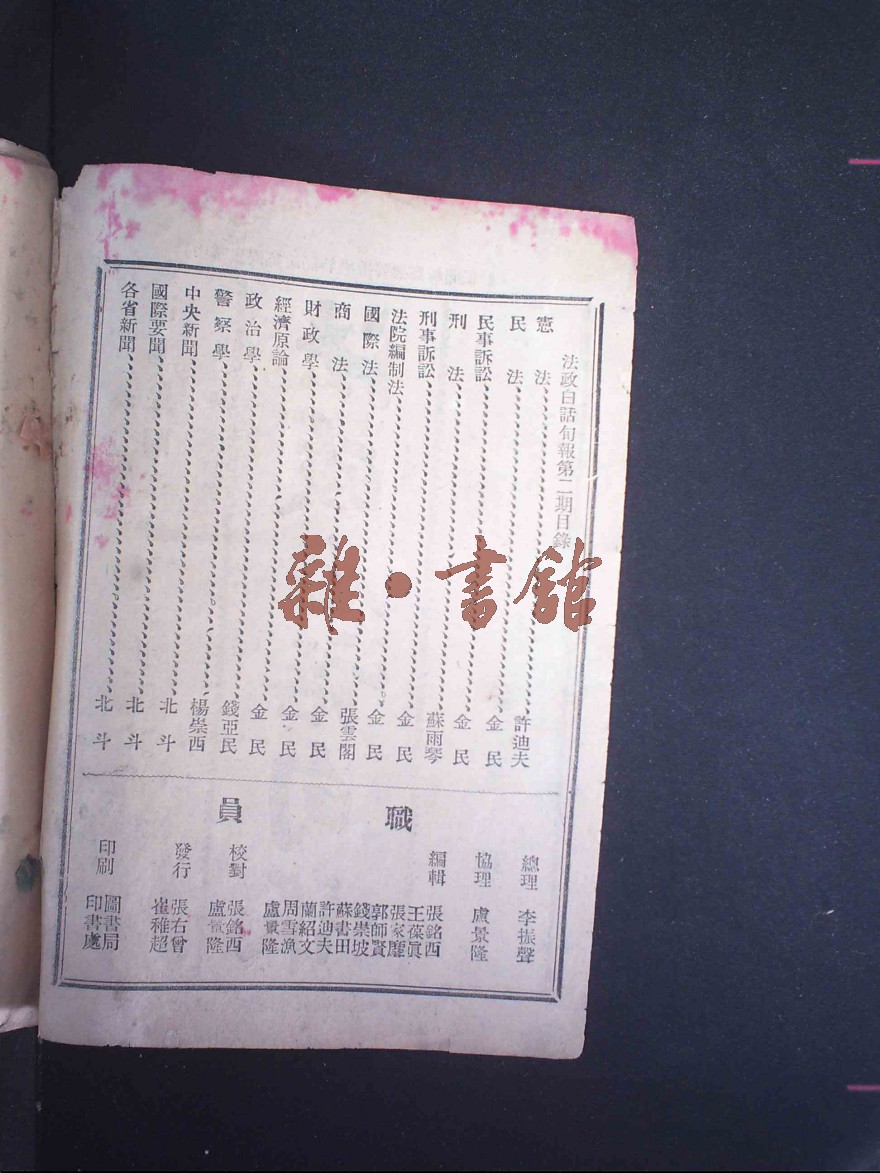 法政白話旬報第二期目錄
憲法 許迪夫
民法 金民
民事訴訟 金民
刑法 蘇雨琴
刑事訴訟 金民
法院編制法 金民
國際法 張雲閣
商法 金民
財政學 金民
經濟原論 金民
政治學 錢亞民
警察學 楊崇西
中央新聞 北斗
國際要聞 北斗
各省新聞 北斗
職員
總理 李振聲
協理 盧景隆
編輯 張銘西
王葆真
張家
郭師賢
錢崇坡
蘇書田
許迪夫
蘭紹文
周雪漁
盧景隆
校對 張銘西
盧景隆
發行 張右曾
崔稚超
印刷 圖書局
印書處
雜·書館